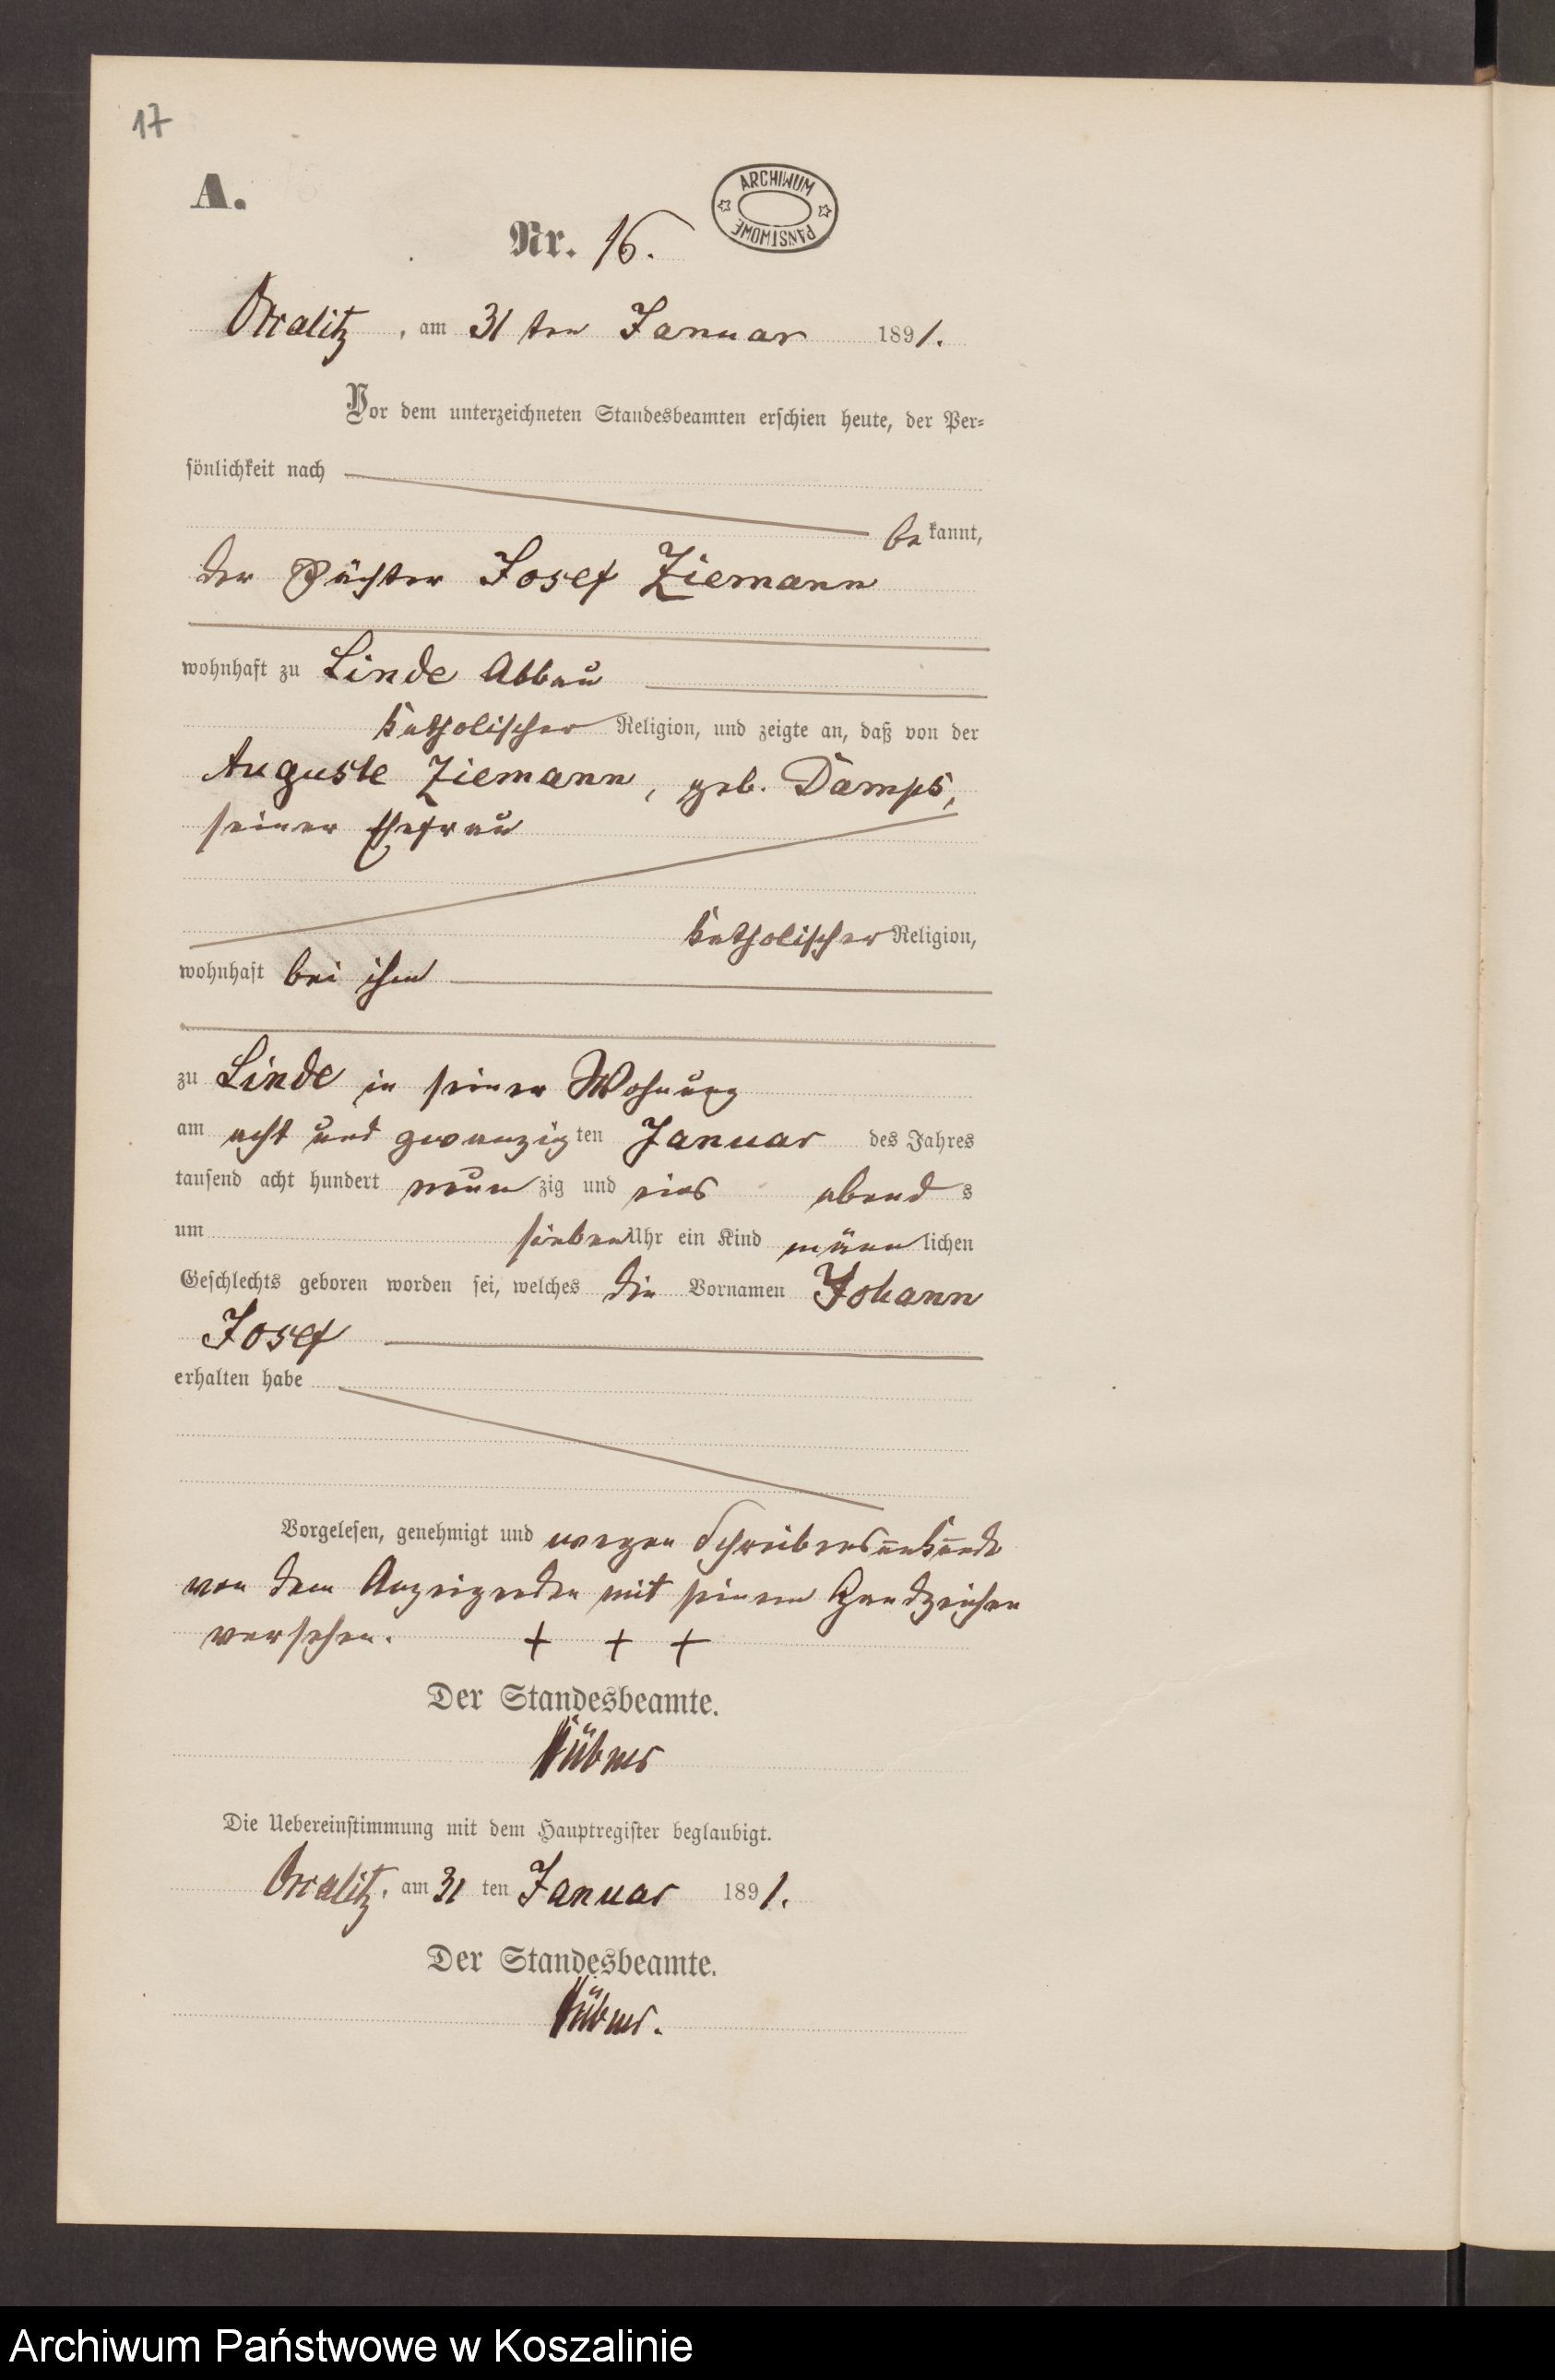 17
A.
ARCHIWUM PAŃSTWOWE
Nr. 16.
am 31 ten Januar 1891.
Vor dem unterzeichneten Standesbeamten erschien heute, der Per-
sönlichkeit nach
bekannt,
der Pächter Josef Ziemann
wohnhaft zu Linde Abbau
katholischer Religion, und zeigte an, daß von der
Auguste Ziemann, geb. Damps,
seiner Ehefrau
katholischer Religion,
wohnhaft bei ihm
zu Linde in seiner Wohnung
am acht und zwanzigten Januar des Jahres
tausend acht hundert neunzig und eins abends
um sieben Uhr ein Kind männlichen
Geschlechts geboren worden sei, welches die Vornamen Johann
Josef
erhalten habe
Vorgelesen, genehmigt und wegen Schreibensunkunde
von dem Anzeigenden mit seinem Handzeichen
versehen. + + +
Der Standesbeamte.
Hübner
Die Uebereinstimmung mit dem Hauptregister beglaubigt.
am 31 ten Januar 1891.
Der Standesbeamte.
Hübner.
Archiwum Państwowe w Koszalinie